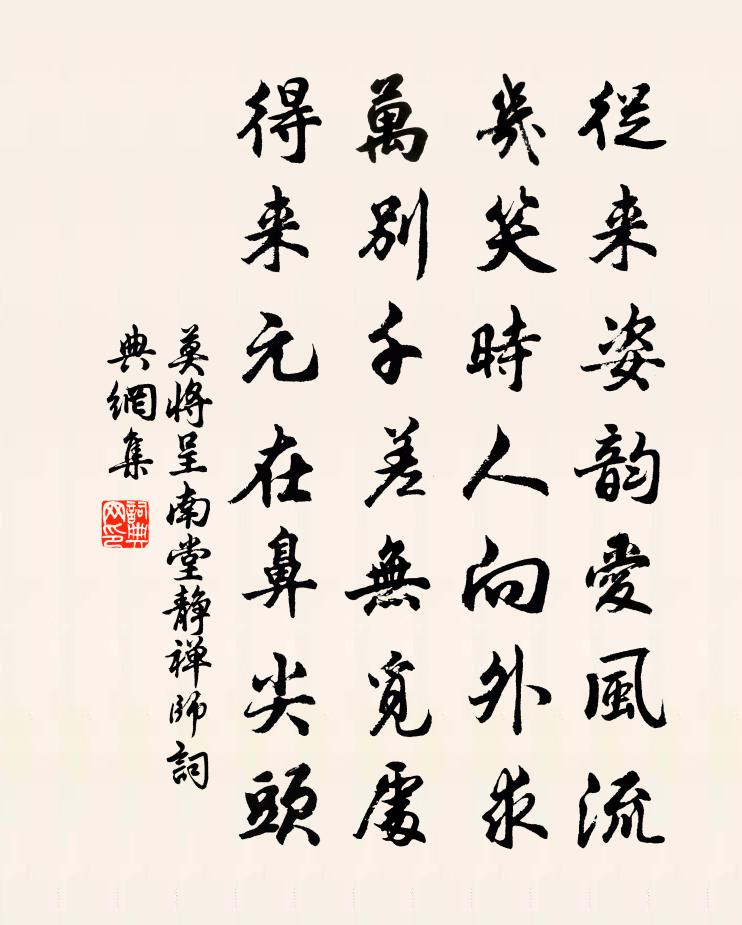 從来姿韵愛風流
幾笑時人向外求
萬别千差無覓處
得来元在鼻尖頭
莫將呈南堂静禅師詞
典網集
詞典
网印